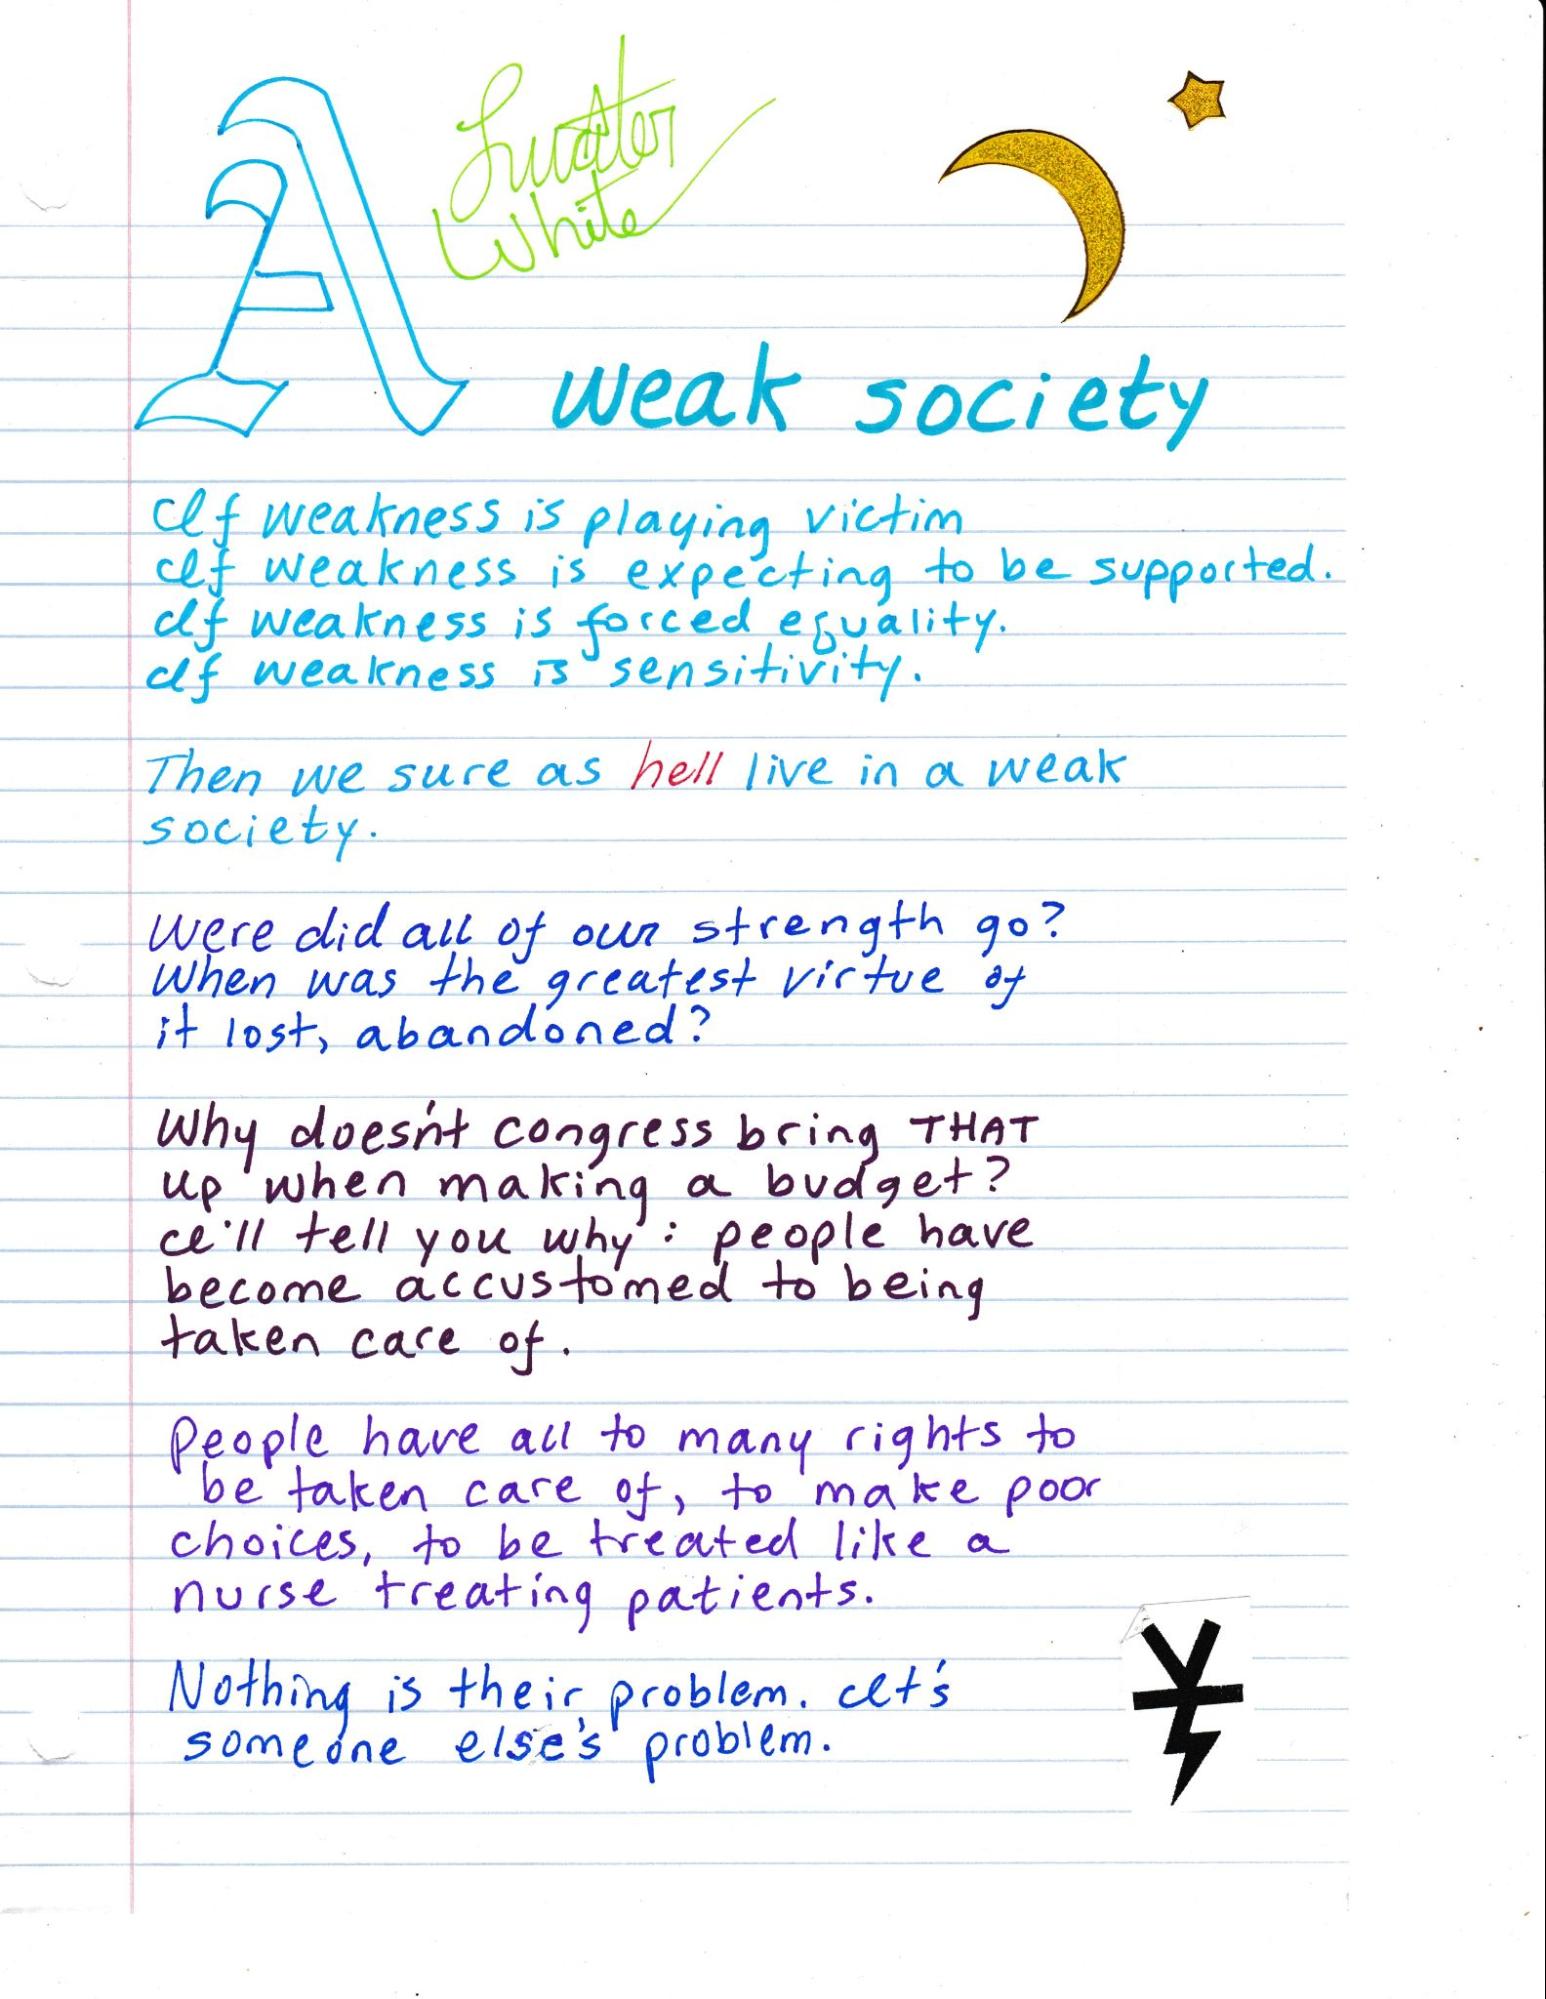 White
A weak society
If weakness is playing victim
If weakness is expecting to be supported.
If weakness is forced equality.
If weakness is sensitivity.
Then we sure as hell live in a weak
society.
Were did all of our strength go?
When was the greatest virtue of
it lost, abandoned?
Why doesn't congress bring THAT
up when making a budget?
I'll tell you why: people have
become accustomed to being
taken care of.
People have all to many rights to
be taken care of, to make poor
choices, to be treated like a
nurse treating patients.
Nothing is their problem. It's
someone else's problem.